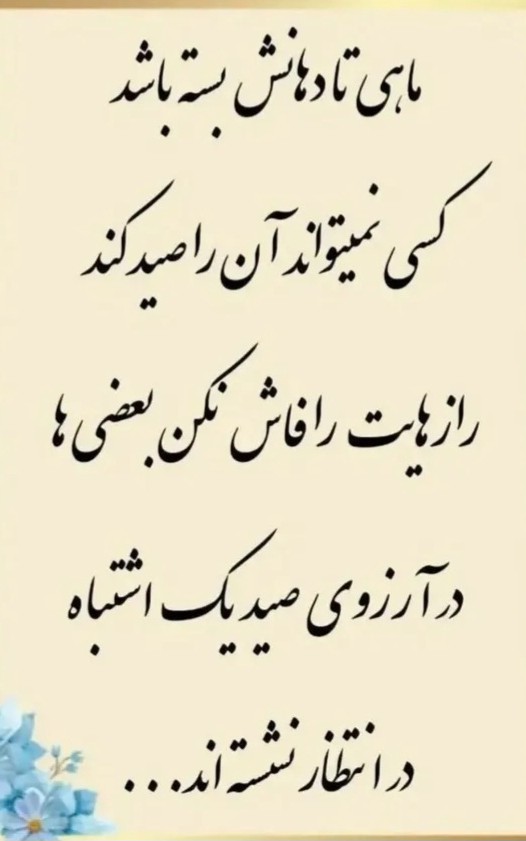 ماهی تا دهانش بسته باشد
کسی نمیتواند آن را صید کند
رازهایت را فاش نکن بعضی ها
در آرزوی صید یک اشتباه
در انتظار نشسته اند...